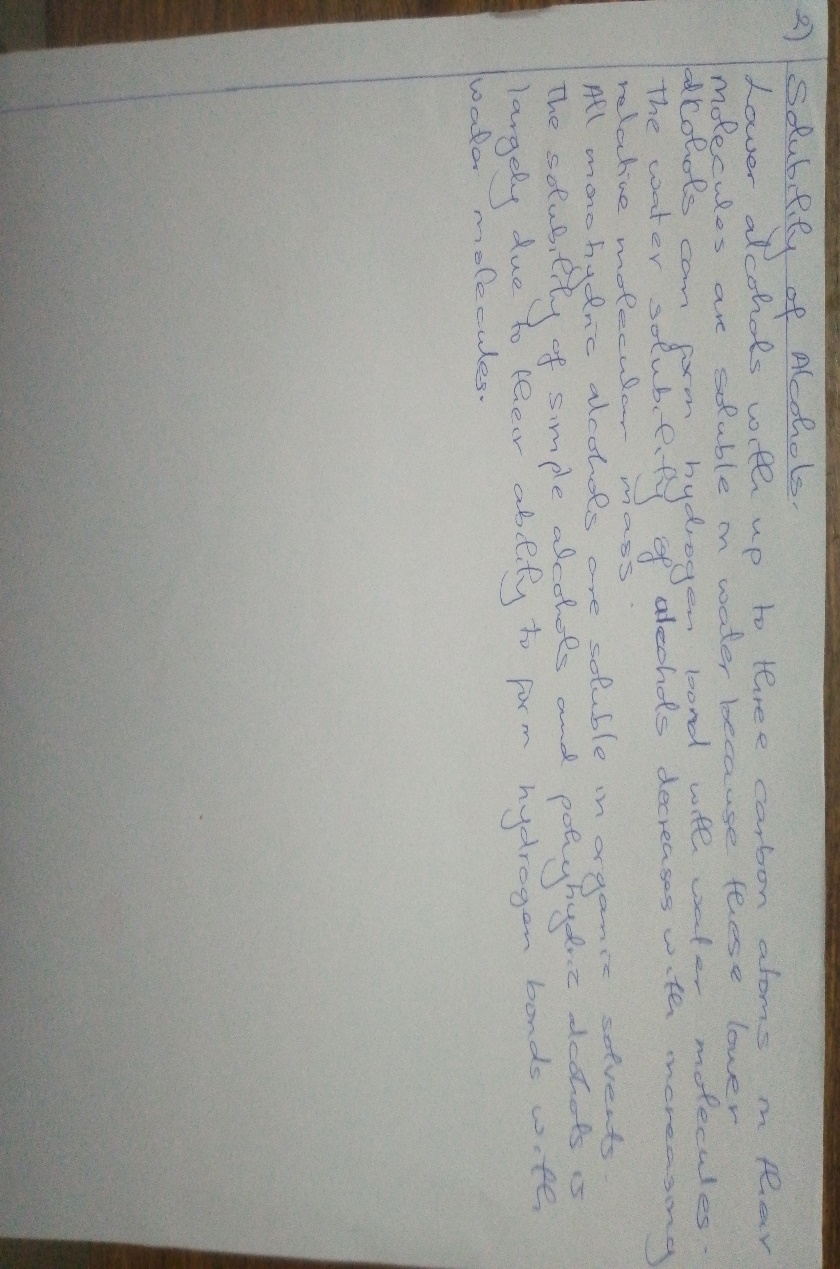 2) Solubility of Alcohols.
Lower alcohols with up to three carbon atoms in their
molecules are soluble in water because these lower
alcohols can form hydrogen bond with water molecules.
The water solubility of alcohols decreases with increasing
relative molecular mass.
All monohydric alcohols are soluble in organic solvents.
The solubility of simple alcohols and polyhydric alcohols is
largely due to their ability to form hydrogen bonds with
water molecules.